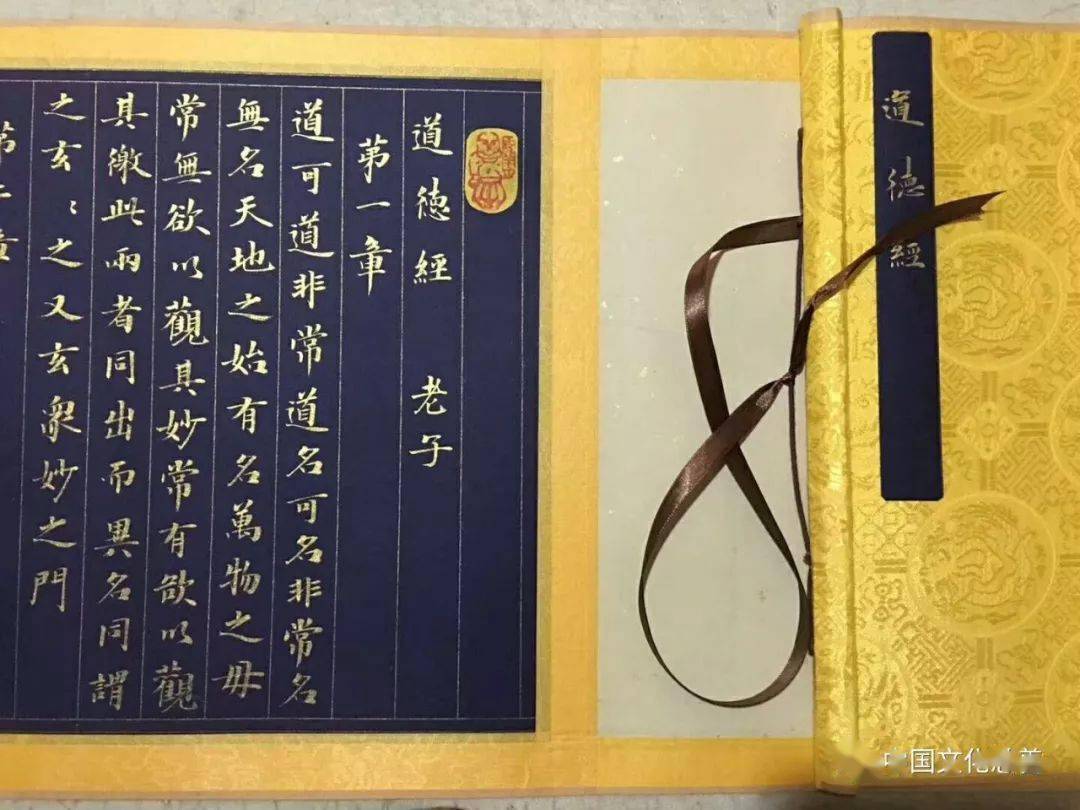 道徳經
道徳經 老子
苐一章
道可道非常道名可名非常名
無名天地之始有名萬物之母
常無欲以觀其妙常有欲以觀
其徼此兩者同出而異名同謂
之玄〻之又玄衆妙之門
中国文化